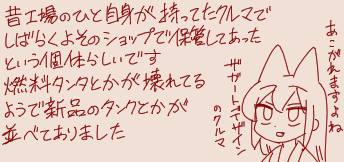 昔工場のひと自身が持ってたクルマで
しばらくよそのショップで保管してあった
という個体らしいです
燃料タンタとかが壊れてる
ようで新品のタンクとかが
並べておりました
あこがれますよね
ザガートデザイン
のクルマ